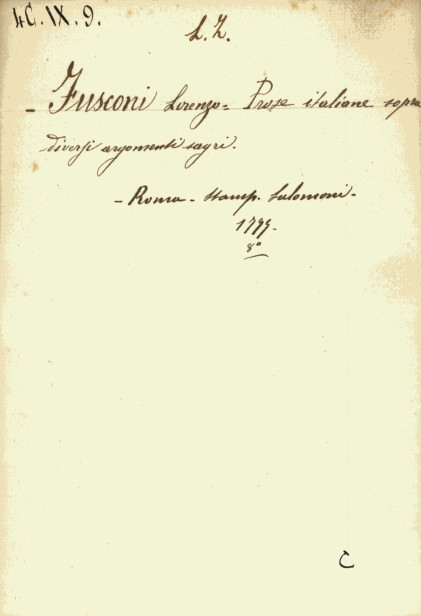 4C. IX. 9.
L. Z.
- Fusconi Lorenzo = Prose italiane sopra
diversi argomenti sagri.
- Roma - Stamp. Salomoni -
8º
C